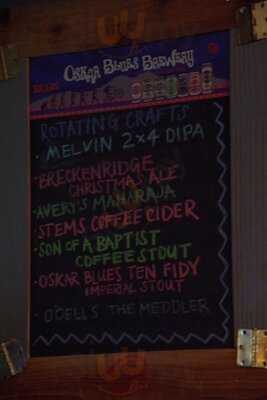 OSKAR BLUES BREWERY
ROTATING CRAFTS
• MELVIN 2x4 DIPA
• BRECKENRIDGE
CHRISTMAS ALE
• AVERY'S MAHARAJA
• STEMS COFFEE CIDER
• SON OF A BAPTIST
COFFEE STOUT
• OSKAR BLUES TEN FIDY
IMPERIAL STOUT
• ODELL'S THE MEDDLER